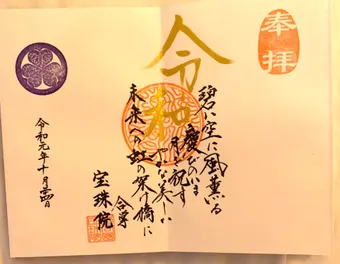 奉拝
令和
碧い空に風薫る
慶びのいま
月を祝す
やかな美しい
未来への虹の架け橋に
合掌
宝珠院
令和元年十月吉日